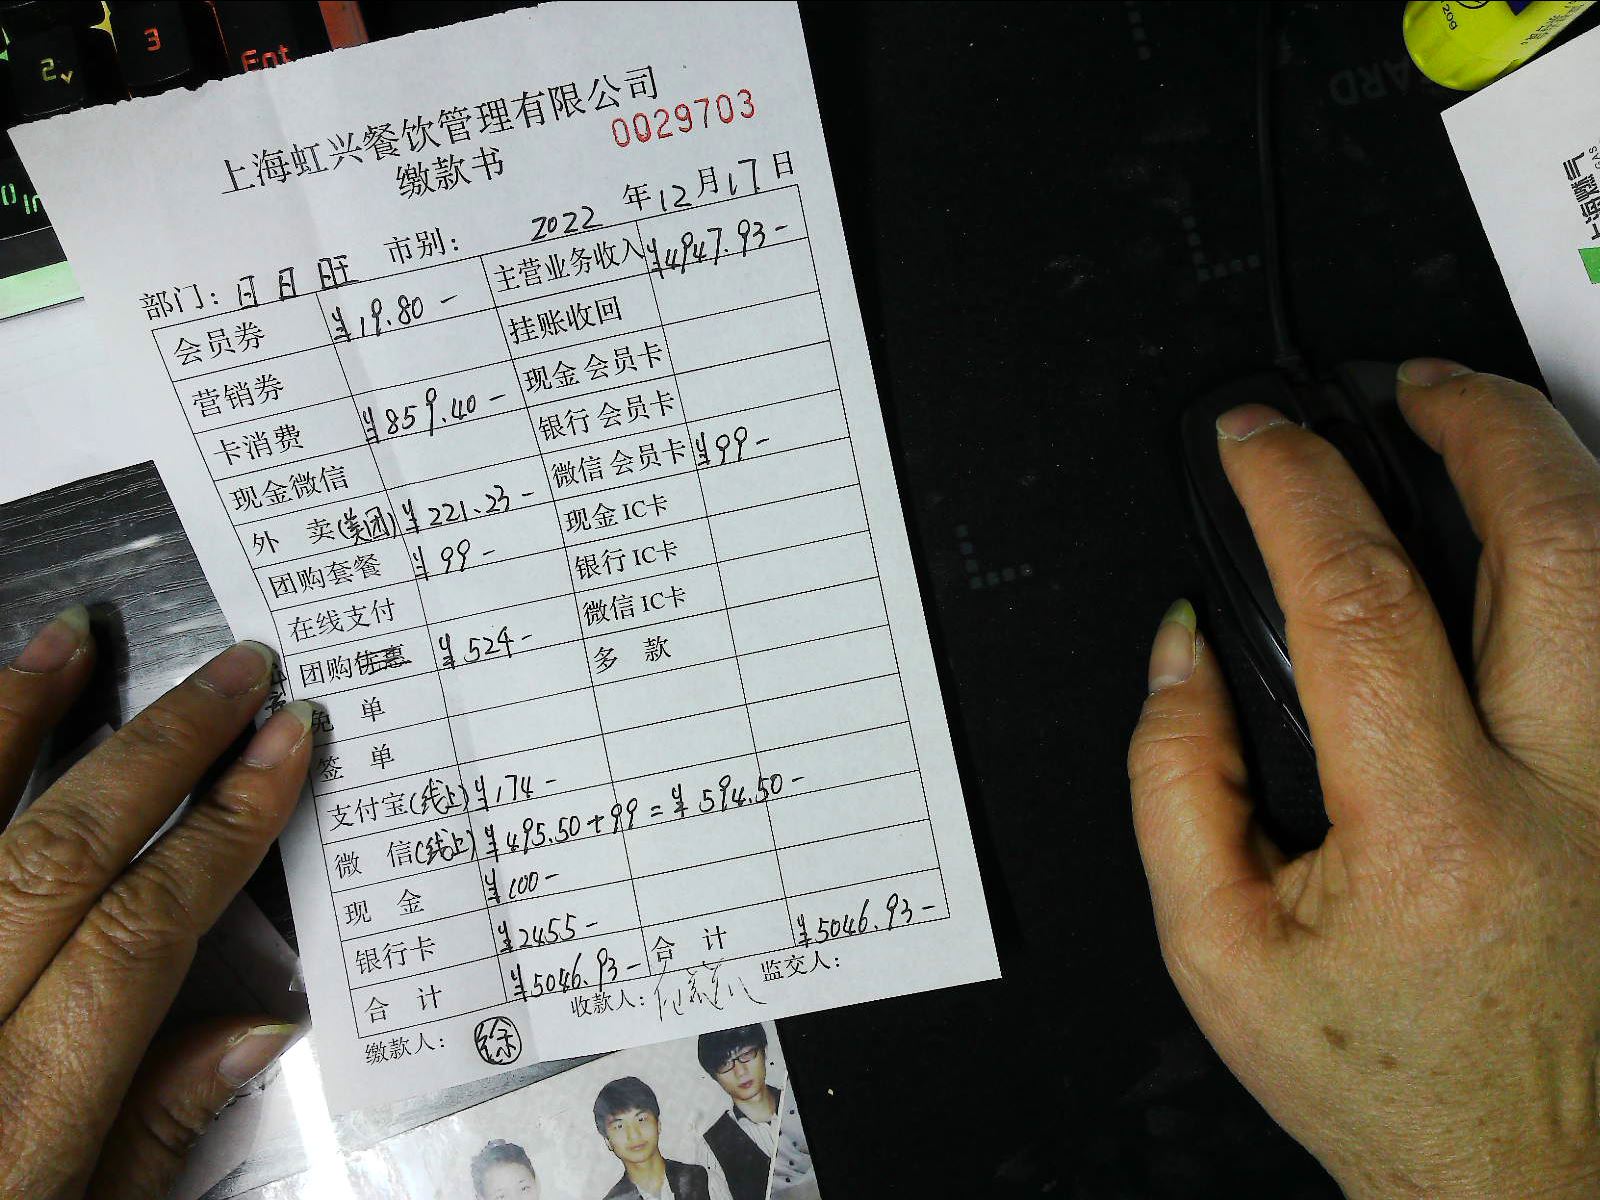 2
3
Ent
上海虹兴餐饮管理有限公司
0029703
缴款书
部门：日月旺 市别： 2022 年 12 月 17 日
会员券 ¥19.80 - 主营业务收入 ¥4947.93 -
营销券 挂账收回
卡消费 ¥859.40 - 现金会员卡
现金微信 银行会员卡
外 卖(美团) ¥221.23 - 微信会员卡 ¥99 -
团购套餐 ¥99 - 现金IC卡
在线支付 银行IC卡
团购优惠 ¥524 - 微信IC卡
免 单 多 款
签 单
支付宝(线上) ¥174 -
微 信(线上) ¥495.50 + 99 = ¥594.50 -
现 金 ¥100 -
银行卡 ¥2455 -
合 计 ¥5046.93 - 合 计 ¥5046.93 -
缴款人： 徐 收款人： 监交人：
20g
上海燃气
GAS